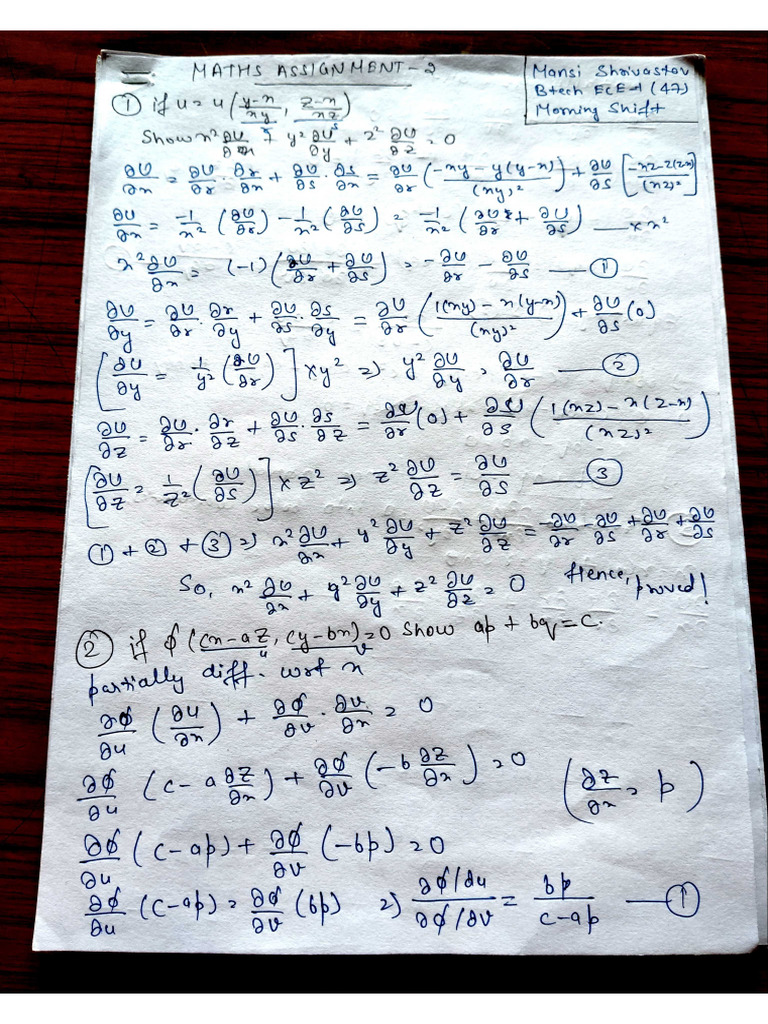 MATHS ASSIGNMENT-2
Mansi Shrivastav
Btech ECE-1 (47)
Morning Shift
① if u = u((y-x)/xy, (z-x)/xz)
Show x² ∂U/∂x + y² ∂U/∂y + z² ∂U/∂z = 0
∂U/∂x = ∂U/∂r · ∂r/∂x + ∂U/∂s · ∂s/∂x = ∂U/∂r ((-xy - y(y-x))/(xy)²) + ∂U/∂s [(-xz - z(z-x))/(xz)²]
∂U/∂x = -1/x² (∂U/∂r) - 1/x² (∂U/∂s) = -1/x² (∂U/∂r + ∂U/∂s) — × x²
x² ∂U/∂x = (-1) (∂U/∂r + ∂U/∂s) = -∂U/∂r - ∂U/∂s — ①
∂U/∂y = ∂U/∂r · ∂r/∂y + ∂U/∂s · ∂s/∂y = ∂U/∂r ((1(xy) - x(y-x))/(xy)²) + ∂U/∂s (0)
[∂U/∂y = 1/y² (∂U/∂r)] × y² ⇒ y² ∂U/∂y = ∂U/∂r — ②
∂U/∂z = ∂U/∂r · ∂r/∂z + ∂U/∂s · ∂s/∂z = ∂U/∂r (0) + ∂U/∂s ((1(xz) - x(z-x))/(xz)²)
[∂U/∂z = 1/z² (∂U/∂s)] × z² ⇒ z² ∂U/∂z = ∂U/∂s — ③
① + ② + ③ ⇒ x² ∂U/∂x + y² ∂U/∂y + z² ∂U/∂z = -∂U/∂r - ∂U/∂s + ∂U/∂r + ∂U/∂s
So, x² ∂U/∂x + y² ∂U/∂y + z² ∂U/∂z = 0 Hence, proved!
② if ϕ (cx-az, cy-bx) = 0 show ap + bq = c.
u v
partially diff. wrt x
∂ϕ/∂u (∂u/∂x) + ∂ϕ/∂v · ∂v/∂x = 0
∂ϕ/∂u (c - a ∂z/∂x) + ∂ϕ/∂v (-b ∂z/∂x) = 0 (∂z/∂x = p)
∂ϕ/∂u (c-ap) + ∂ϕ/∂v (-bp) = 0
∂ϕ/∂u (c-ap) = ∂ϕ/∂v (bp) ⇒ (∂ϕ/∂u)/(∂ϕ/∂v) = bp/(c-ap) — ①